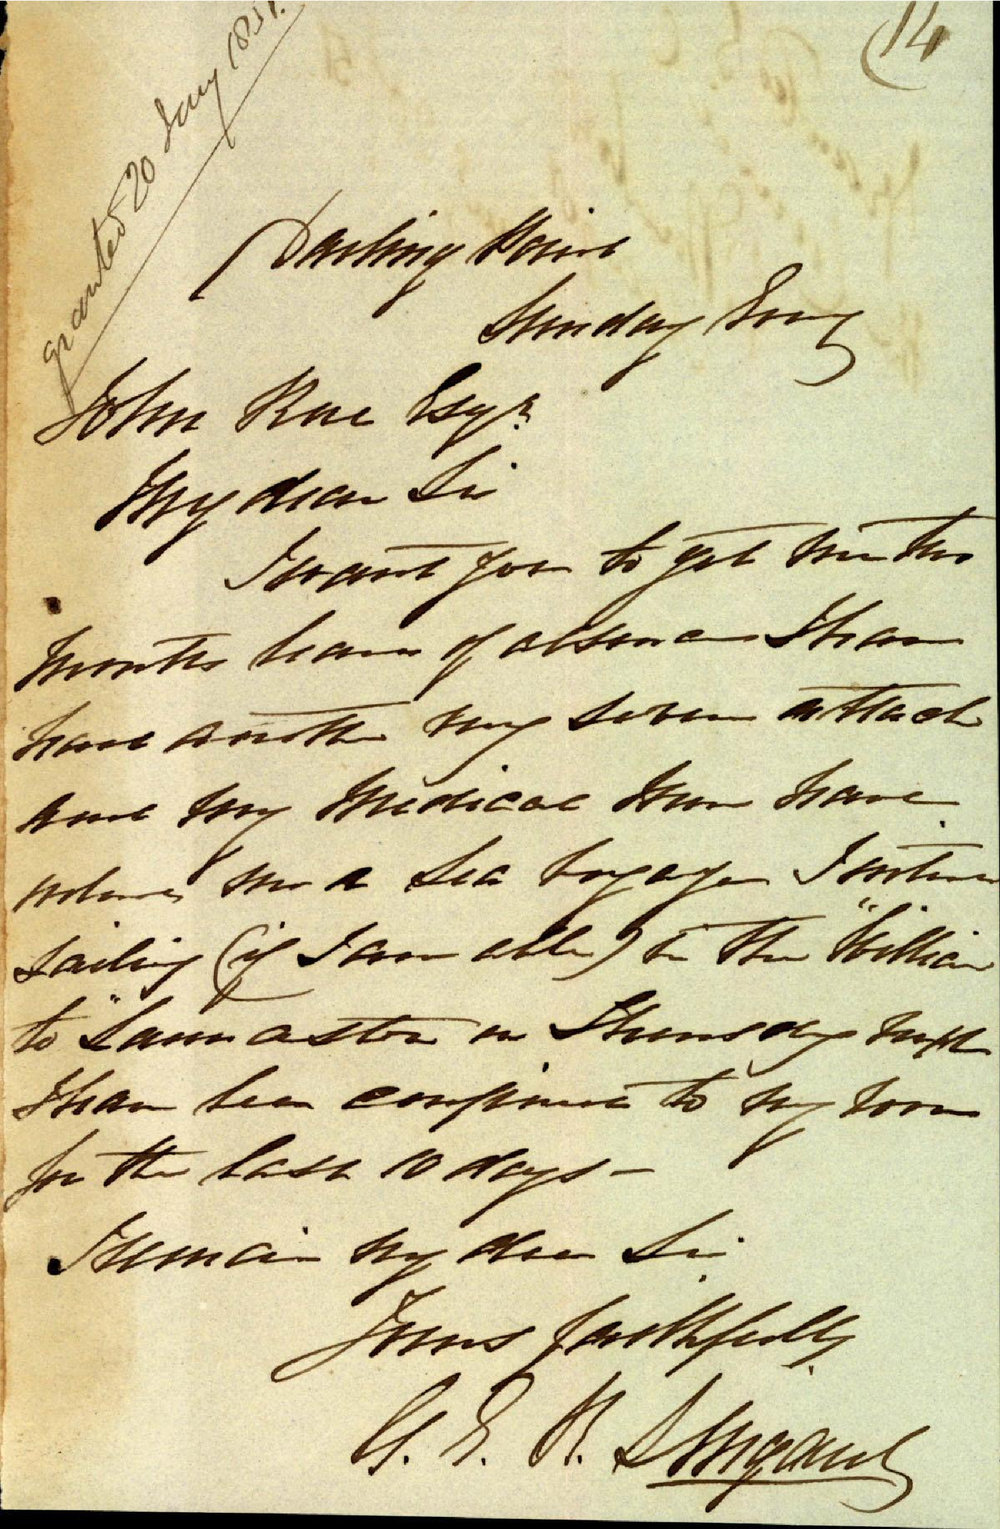 14
granted 20 Jany 1851.
Darling Point
Sunday Evg
John Rae Esqr.
My dear Sir
I want you to get me two
months leave of absence I have
have another very severe attack
and my Medical Men have
ordered me a Sea Voyage I intend
sailing (if I am able) in the "William
to "Lancaster on Thursday next
I have been confined to my room
for the last 10 days –
I remain my dear Sir
Yours faithfully
G. E. R.